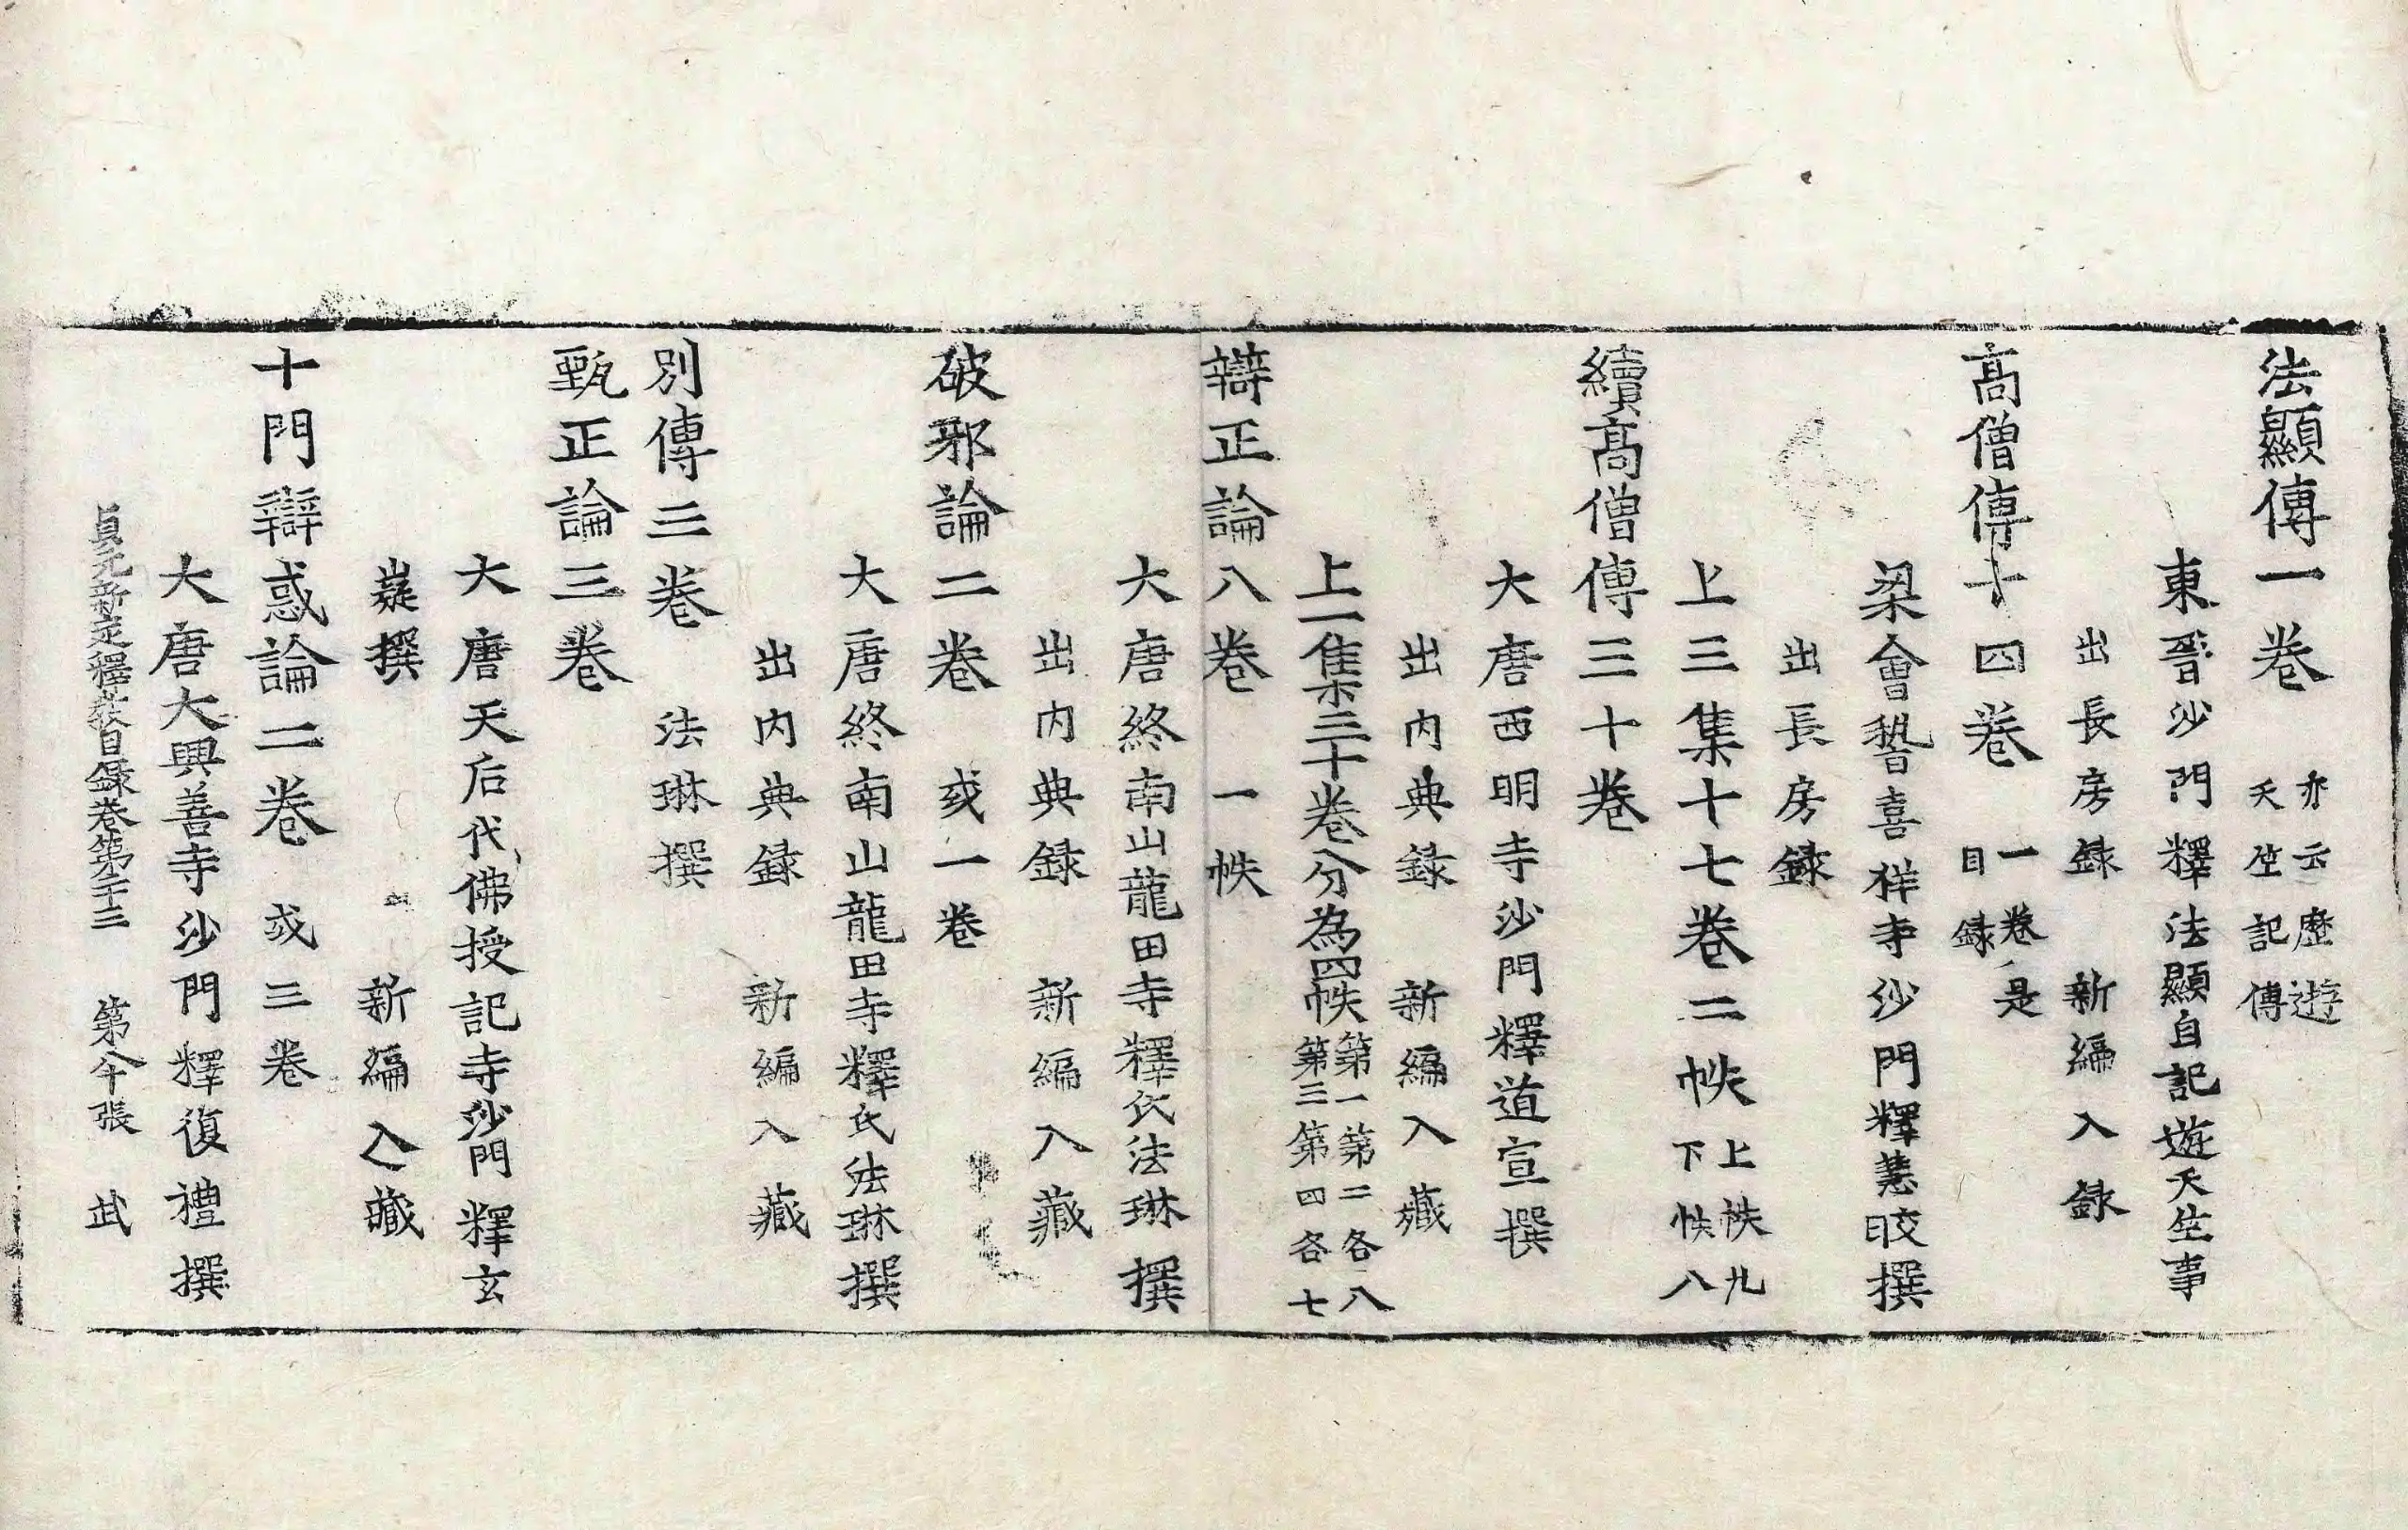 法顯傳一卷 亦云歷遊天竺記傳
東晉沙門釋法顯自記遊天竺事
出長房錄 新編入錄
高僧傳十四卷 一卷是目錄
梁會稽嘉祥寺沙門釋慧皎撰
出長房錄
上三集十七卷二帙 上帙九下帙八
續高僧傳三十卷
大唐西明寺沙門釋道宣撰
出内典錄 新編入藏
上一集三十卷分為四帙 第一第二各八第三第四各七
辯正論八卷 一帙
大唐終南山龍田寺釋氏法琳撰
出内典錄 新編入藏
破邪論二卷 或一卷
大唐終南山龍田寺釋氏法琳撰
出内典錄 新編入藏
別傳三卷 法琳撰
甄正論三卷
大唐天后代佛授記寺沙門釋玄
嶷撰 新編入藏
十門辯惑論二卷 或三卷
大唐大興善寺沙門釋復禮撰
貞元新定釋教目錄卷第二十三 第 張 武